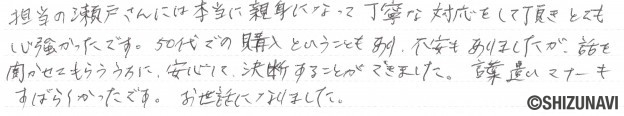 担当の瀬戸さんには本当に親身になって丁寧な対応をして頂きとても
心強かったです。50代での購入ということもあり、不安もありましたが、話を
聞かせてもらううちに、安心して、決断することができました。言葉遣いマナーも
すばらしかったです。お世話になりました。
©SHIZUNAVI